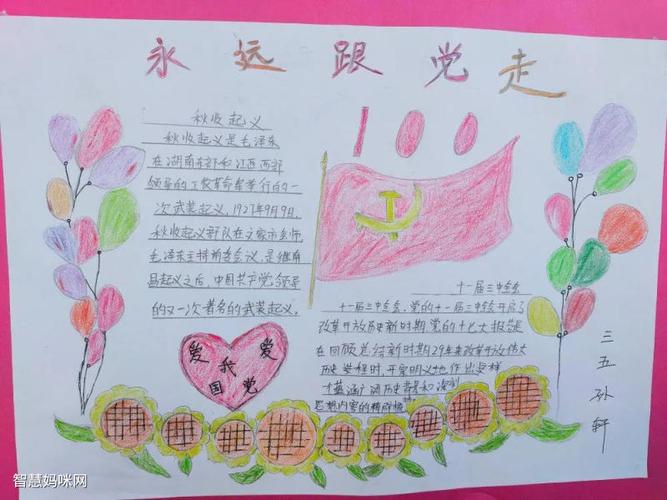 永远跟党走
100
秋收起义
秋收起义是毛泽东
在湖南东部和江西西部
领导的工农革命军举行的一
次武装起义。1927年9月9日,
秋收起义部队在文家市会师
毛泽东主持前委会议,是继南
昌起义之后,中国共产党领导
的又一次著名的武装起义。
十一届三中全会
十一届三中全会,党的十一届三中全会开启了
改革开放历史新时期党的十七大报告
在回顾总结新时期29年来改革开放伟大
历史进程时,开宗明义地作出这样
才蕴涵广阔历史背景和深刻
思想内容的精辟
爱我爱
国党
三五孙轩
智慧妈咪网